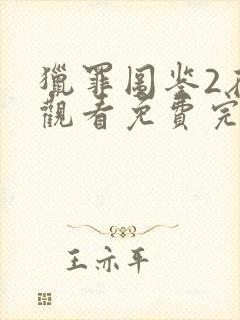 獵罪圖鉴2在
觀看免費完
王亦平